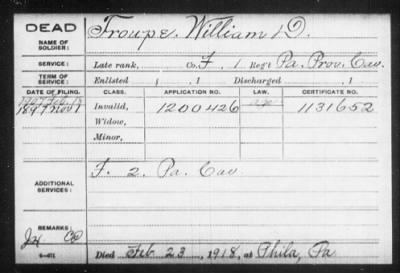 DEAD
NAME OF SOLDIER:
Troupe, William D.
SERVICE:
Late rank, Co. F, 1 Reg't Pa. Prov. Cav.
TERM OF SERVICE:
Enlisted , 1 Discharged , 1
DATE OF FILING. CLASS. APPLICATION NO. LAW. CERTIFICATE NO.
1897 Nov 1 Invalid, 1200426 1131652
Widow,
Minor,
ADDITIONAL SERVICES:
F. 2. Pa. Cav
REMARKS:
Died Feb. 23, 1918, at Phila, Pa